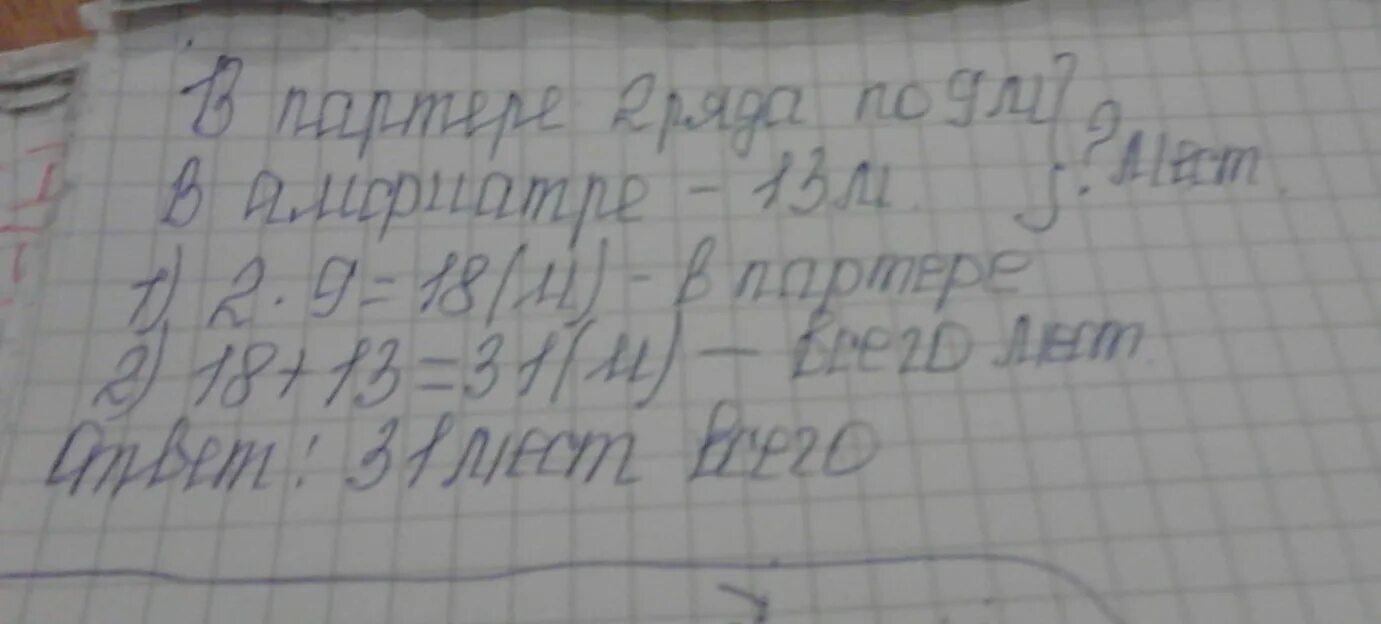 В партере 2 ряда по 9 м } ? мест.
В амфиатре - 13 м.
1) 2 · 9 = 18 (м) - в партере
2) 18 + 13 = 31 (м) — всего мест.
Ответ: 31 мест всего